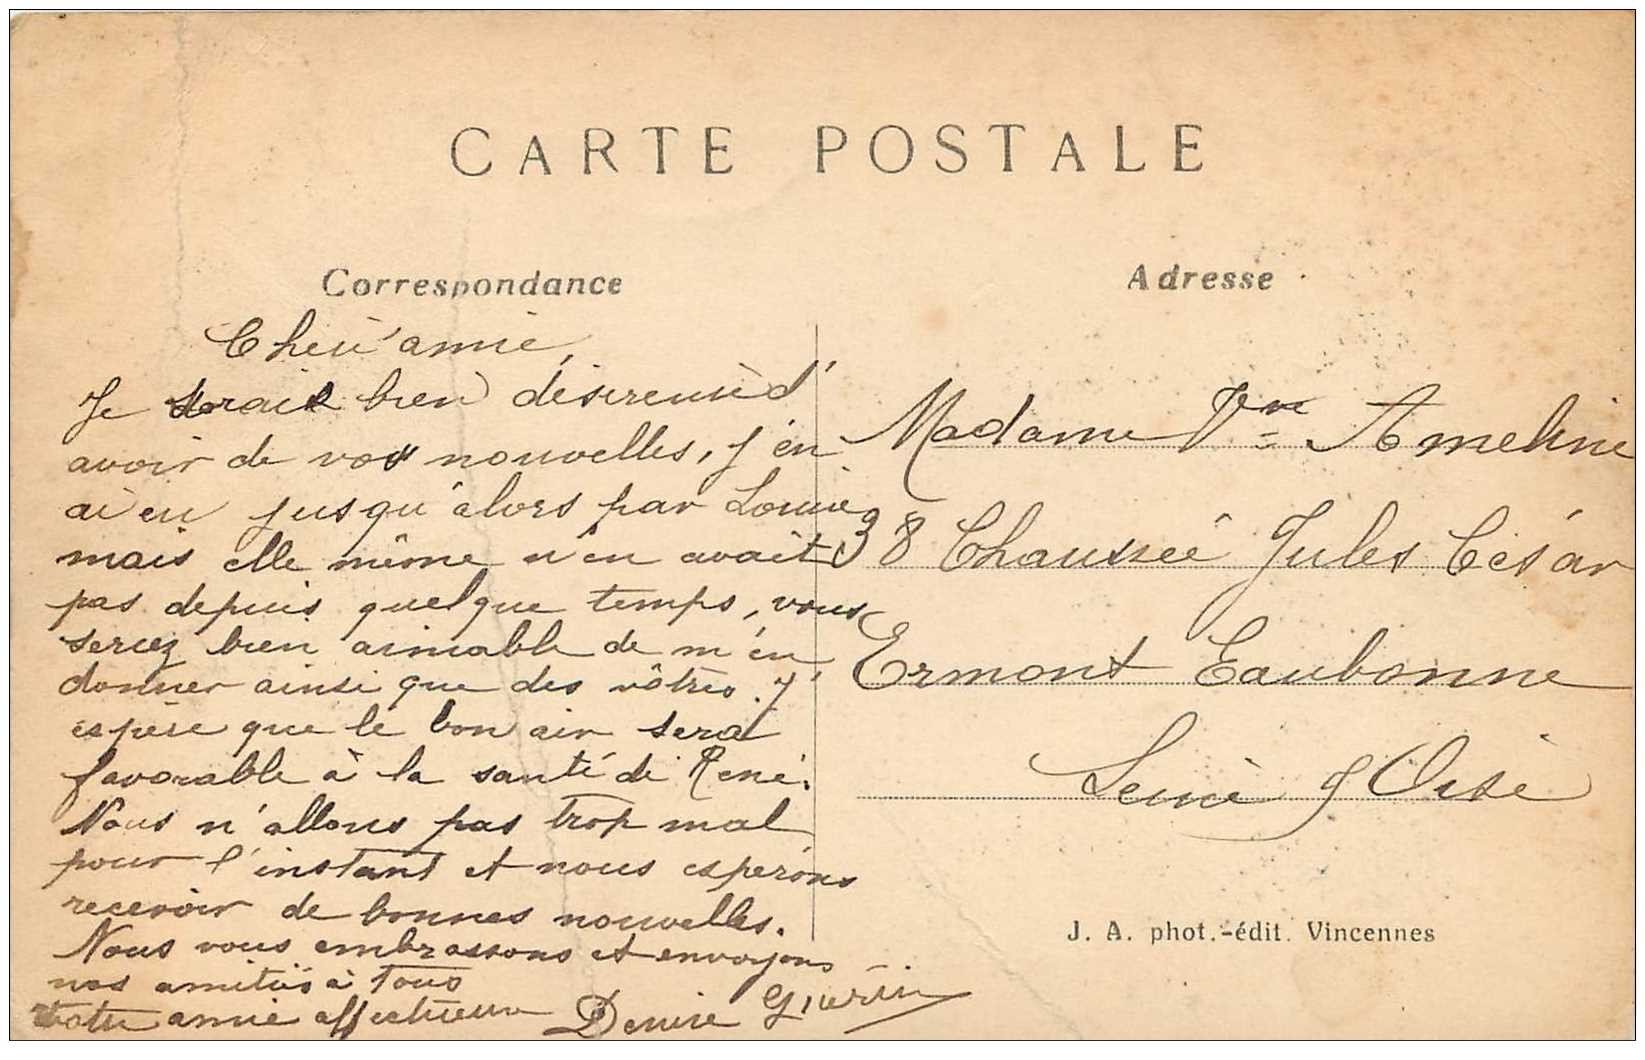 CARTE POSTALE
Correspondance
Chère amie,
Je serais bien désireuse d'
avoir de vos nouvelles, j'en
ai eu jusqu'alors par Louise
mais elle même n'en avait
pas depuis quelque temps, vous
seriez bien aimable de m'en
donner ainsi que des vôtres. J'
espère que le bon air sera
favorable à la santé de René.
Nous n'allons pas trop mal
pour l'instant et nous espérons
recevoir de bonnes nouvelles.
Nous vous embrassons et envoyons
nos amitiés à tous
Votre amie affectueuse Denise Guérin
Adresse
Madame Vve Ameline
38 Chaussée Jules César
Ermont Eaubonne
Seine & Oise
J. A. phot.-édit. Vincennes